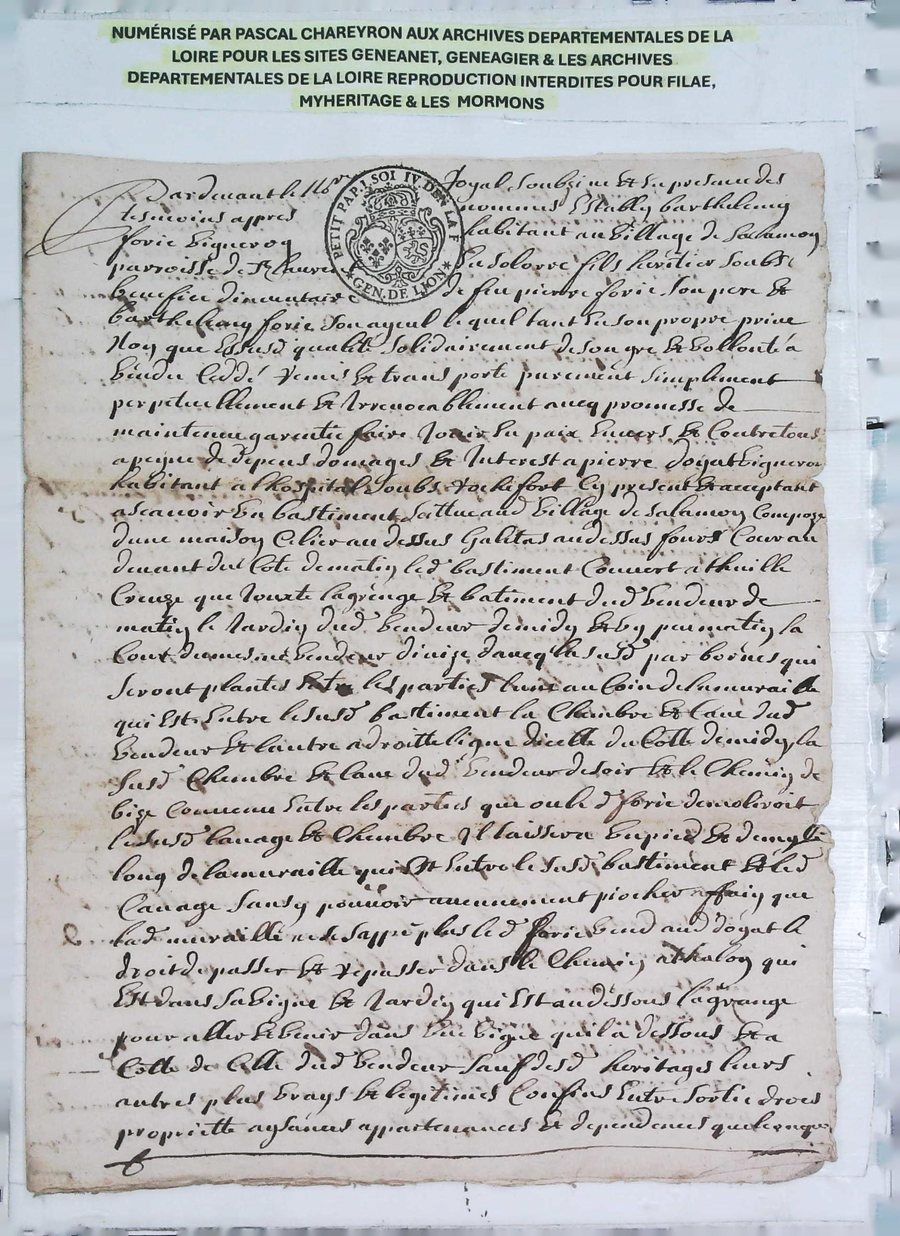 NUMÉRISÉ PAR PASCAL CHAREYRON AUX ARCHIVES DEPARTEMENTALES DE LA
LOIRE POUR LES SITES GENEANET, GENEAGIER & LES ARCHIVES
DEPARTEMENTALES DE LA LOIRE REPRODUCTION INTERDITES POUR FILAE,
MYHERITAGE & LES MORMONS
PETIT PAP. I SOL IV DEN LA F
GEN. DE LION
Pardevant le No Royal soubziné & en presence des
tesmoins appres nommés Estably barthelemy
forie vigneron habitant au village de Salamon
parroisse de St Lauren En Solorre fils heritier soubs
benefice dinventaire de feu pierre forie son pere &
barthelemy forie son ayeul lequel tant En son propre prive
Nom que Essusd qualité solidairement de son gré & vollonté a
vendu Ceddé remis & transporté purement simplement
perpetuellement & Irrevocablement avecq promesse de
maintenue garentie faire Jouir En paix Envers & Contre tous
a peyne de depens domages & Interest a pierre doyat vigneron
habitant a lhospital soubs rochefort Cy present & acceptant
ascavoir Un bastiment scittue aud village de Salamon Compozé
dune maison Celier au dessus galetas au dessus fours Cour au
devant du Cote de matin led bastiment Couvert a thuille
Creuze que Jouxte la grenge & batiment dud vendeur de
matin le Jardin dud vendeur de midy & un peu matin la
Cour du mesme vendeur divize davecq la susd par bornes qui
seront plantés Entre les parties lune au Coin de la muraille
qui Est Entre le susd bastiment la Chambre & Cave dud
vendeur & lautre a droitte ligne dicelle du Cotté de midy la
susd Chambre & Cave dud vendeur de soir & le Chemin de
bize Convenu Entre les parties que ou le d forie demoliroit
le susd Cavage & Chambre Il laissera Un pied & demy le
long de la muraille qui Est Entre le susd bastiment & led
Cavage sans y pouvoir aucunement piocher affin que
lad muraille ne se sappe plus led forie vend aud doyat le
droit de passer & repasser dans le Chemin a thalon qui
Est dans sa vigne & Jardin qui Est au dissous la grange
pour aller & venir dans Une vigne quil a dessous & a
Cotté de Celle dud vendeur sauf desd heritages leurs
autres plus vrays & legitimes Confins Entre sortie drois
proprietté aysances appartenances & dependences quelconques